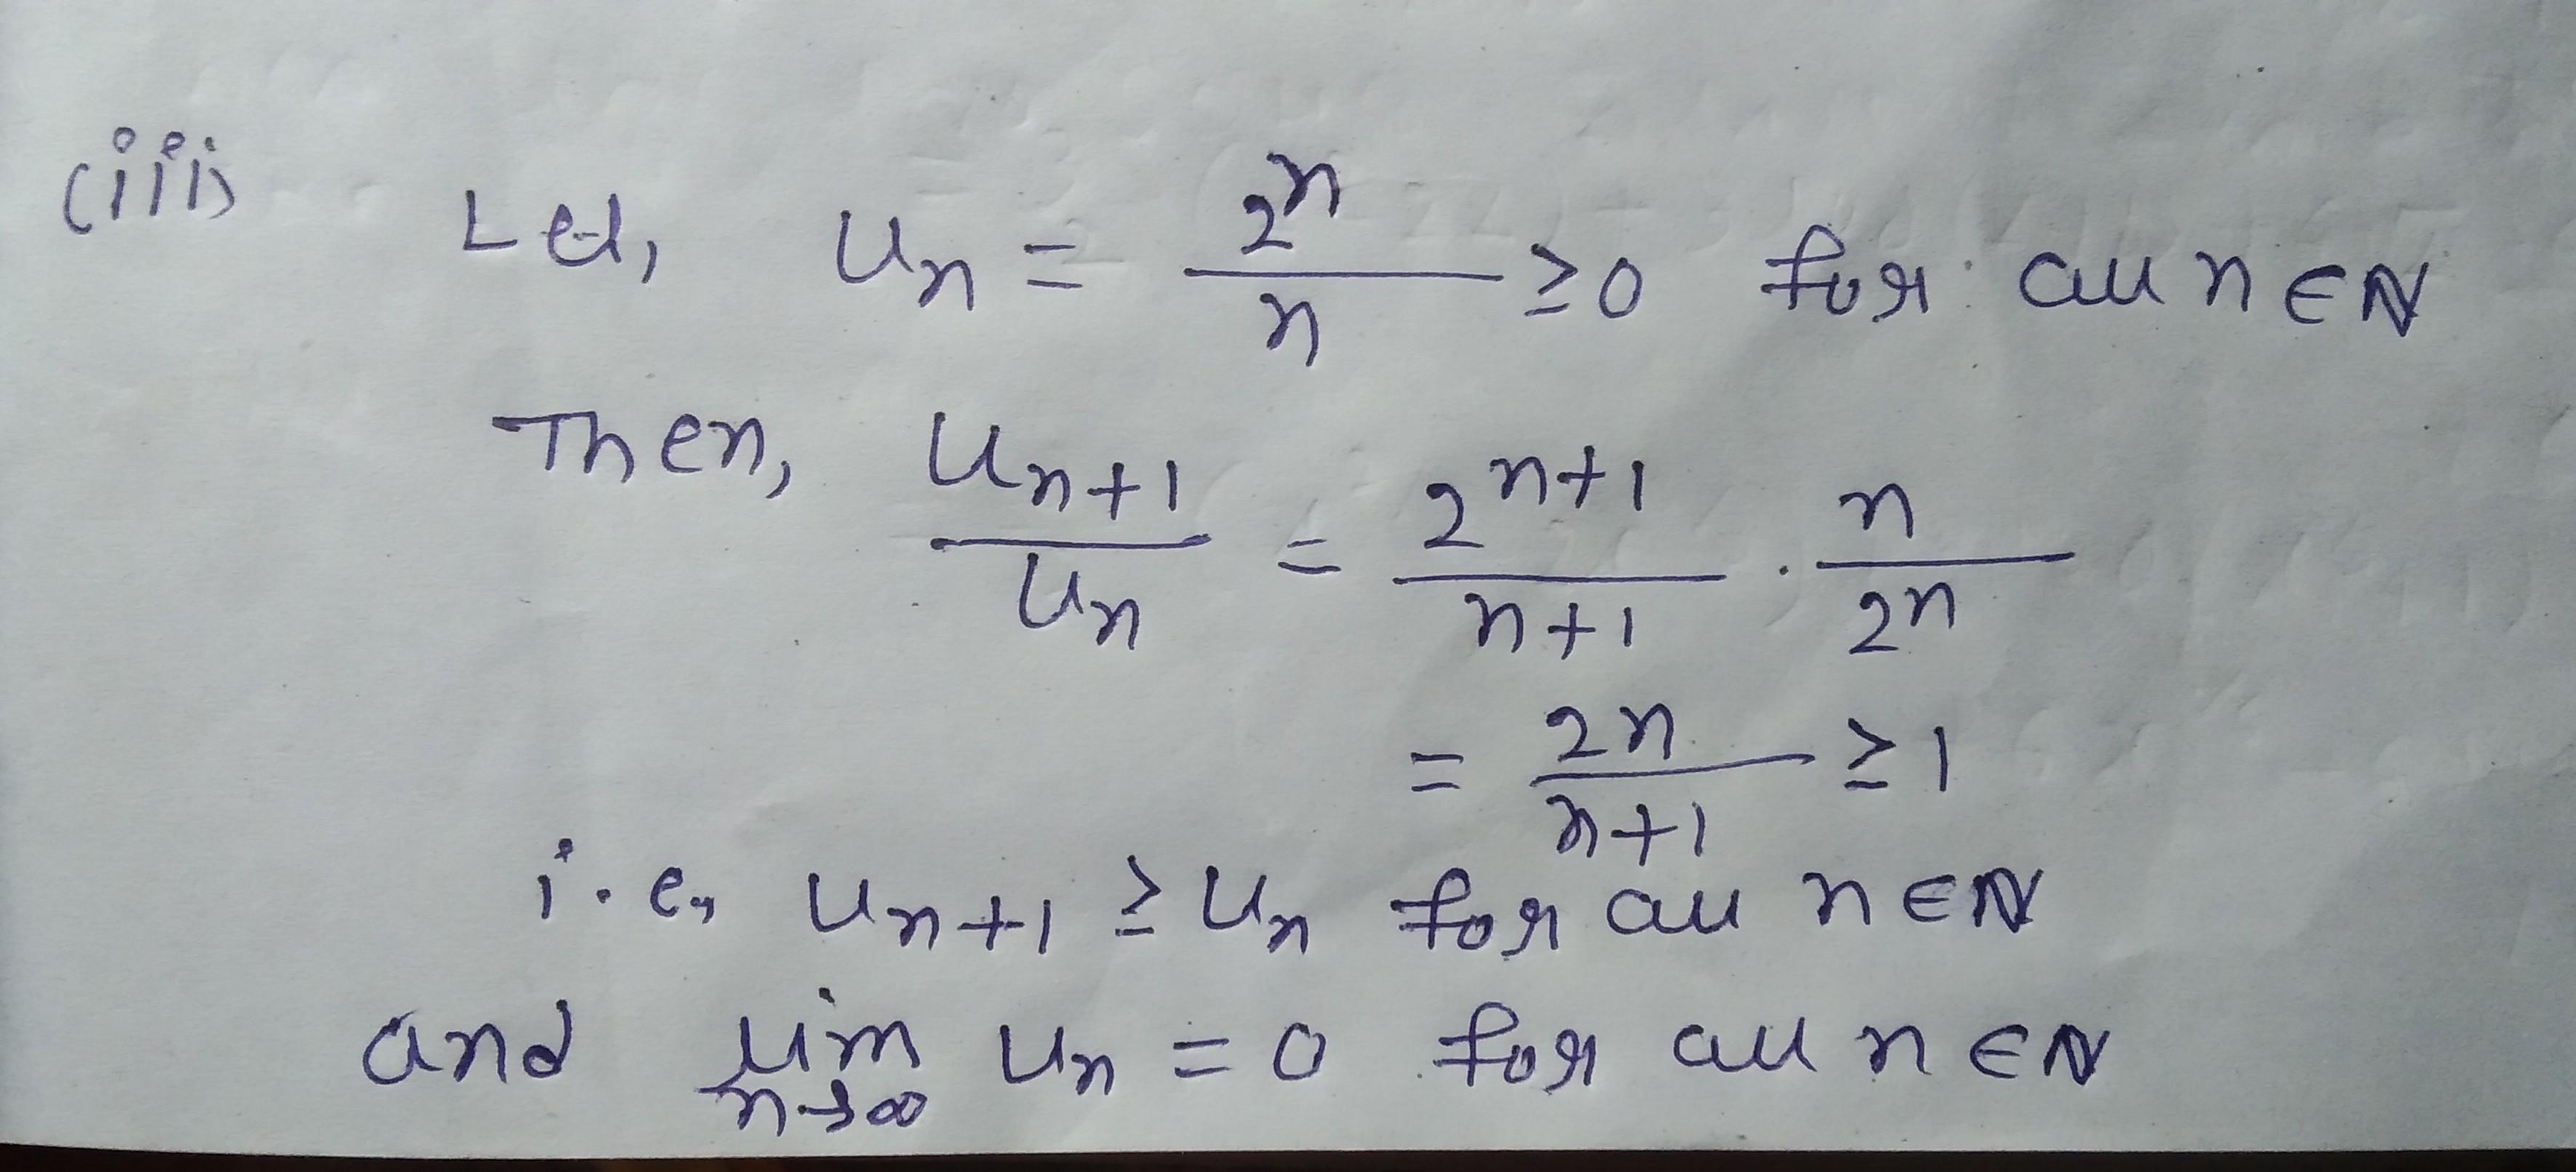 (iii) Let, uₙ = 2ⁿ/n ≥ 0 for all n ∈ ℕ
Then, uₙ₊₁/uₙ = 2ⁿ⁺¹/(n+1) · n/2ⁿ
= 2n/(n+1) ≥ 1
i.e., uₙ₊₁ ≥ uₙ for all n ∈ ℕ
and lim n→∞ uₙ = 0 for all n ∈ ℕ